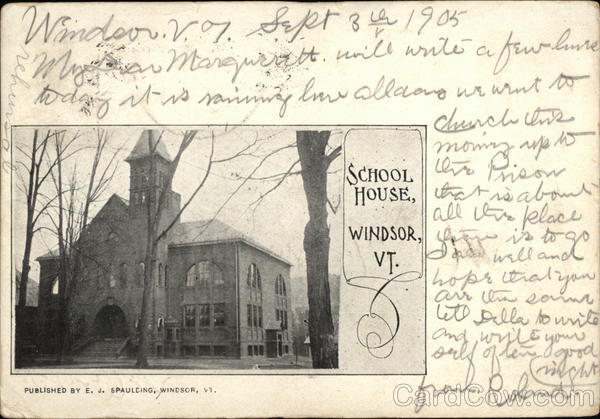 Windsor. V.T. Sept 3th 1905
My dear Marguerett. will write a few lines
today it is raining here all day we went to
church this
morning up to
the Prison
that is about
all the place
there is to go
I am well and
hope that you
are the same
tell Della to write
and write your
self often good
night
from
SCHOOL
HOUSE,
WINDSOR,
VT.
PUBLISHED BY E. J. SPAULDING, WINDSOR, VT.
CardCow.com